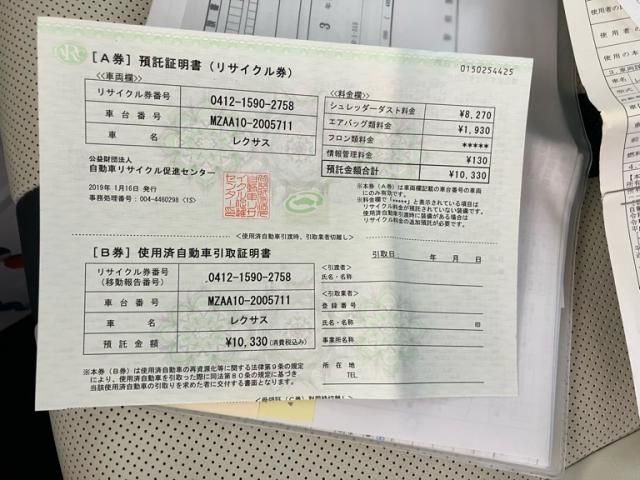 [A券] 預託証明書(リサイクル券)
0150254425
≪車両欄≫
リサイクル券番号 0412-1590-2758
車台番号 MZAA10-2005711
車名 レクサス
≪料金欄≫
シュレッダーダスト料金 ¥8,270
エアバッグ類料金 ¥1,930
フロン類料金 *****
情報管理料金 ¥130
預託金額合計 ¥10,330
公益財団法人
自動車リサイクル促進センター
2019年 1月16日 発行
事務処理番号:004-4460298 (1S)
※本券(A券)は車両欄記載の車台番号の車両
にのみ有効です。
※料金欄で「*****」と表示されている項目は
リサイクル料金が預託されていない装備です。
使用済自動車引渡時に装備がある場合は
リサイクル料金の追加預託が必要です。
<使用済自動車引渡時、引取業者切離し>
[B券] 使用済自動車引取証明書
引取日 年 月 日
リサイクル券番号
(移動報告番号) 0412-1590-2758
車台番号 MZAA10-2005711
車名 レクサス
預託金額 ¥10,330(消費税込み)
<引渡者>
氏名・名称
<引取業者>
登録番号
氏名・名称 印
事業所名
所在地
TEL.
※本券(B券)は使用済自動車の再資源化等に関する法律第9条の規定
により、使用済自動車を引取った際に同法第80条の規定に基づき
当該使用済自動車の引取りを求めた者に交付する書面となります。